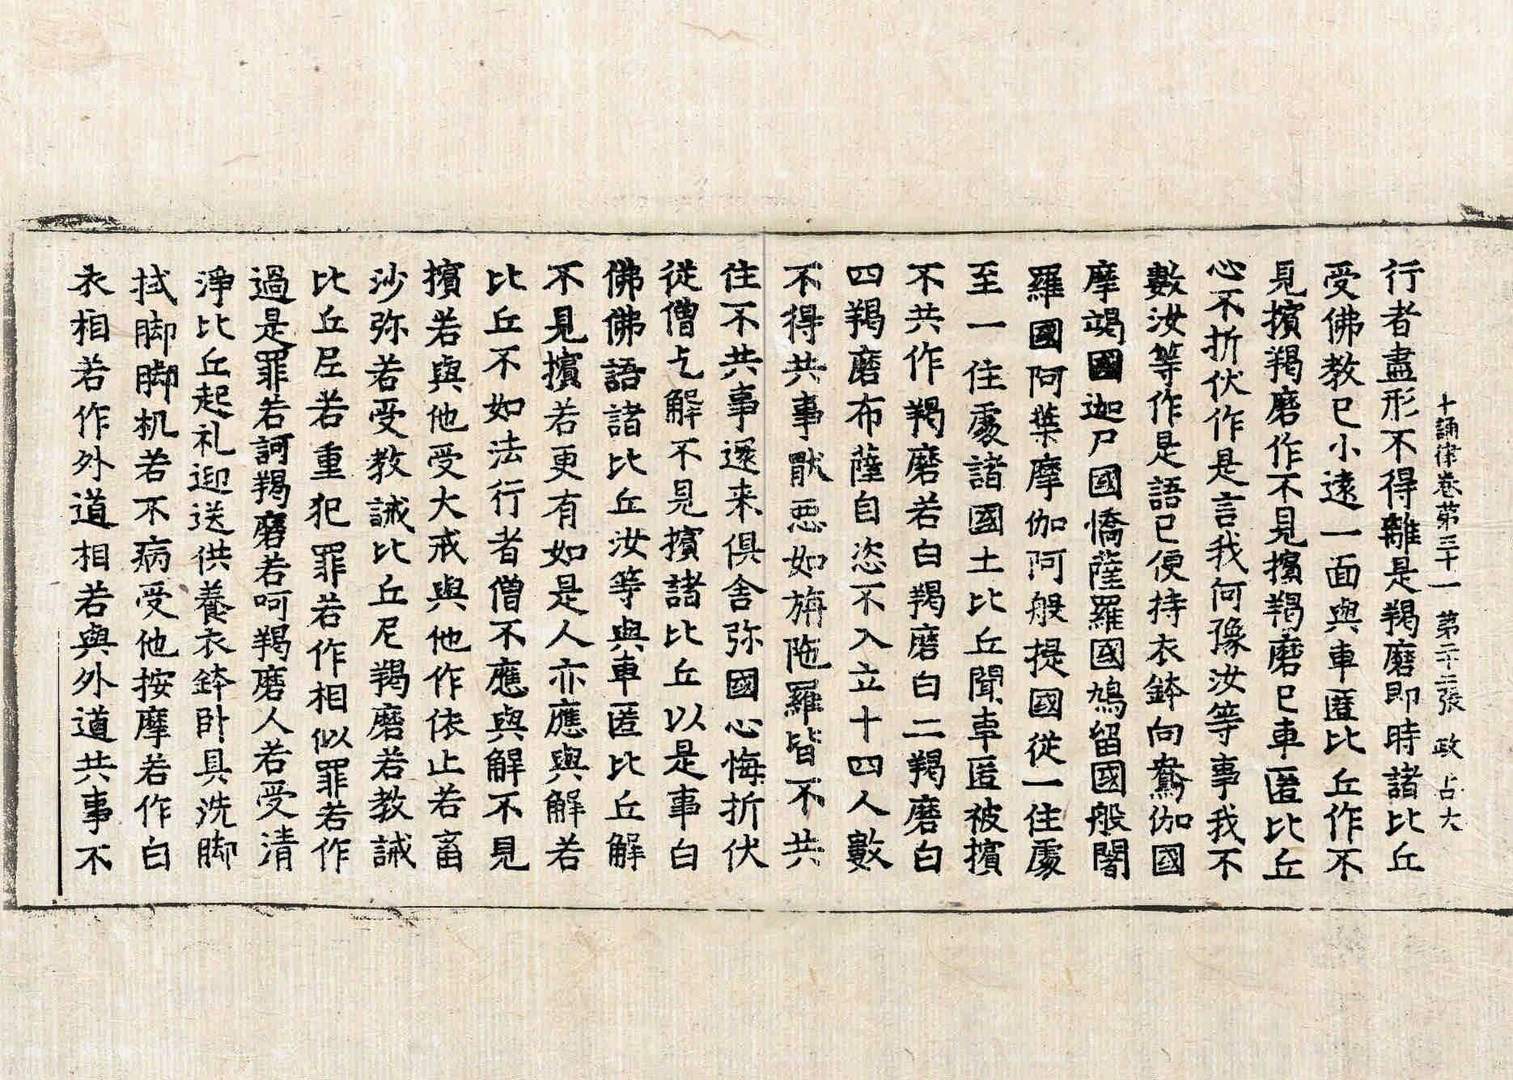 十誦律卷第三十一　第二十二張　政　占大
行者盡形不得離是羯磨即時諸比丘
受佛教已小遠一面與車匿比丘作不
見擯羯磨作不見擯羯磨已車匿比丘
心不折伏作是言我何豫汝等事我不
數汝等作是語已便持衣鉢向鴦伽國
摩竭國迦尸國憍薩羅國鳩留國般闍
羅國阿葉摩伽阿般提國從一住處
至一住處諸國土比丘聞車匿被擯
不共作羯磨若白羯磨白二羯磨白
四羯磨布薩自恣不入立十四人數
不得共事猒惡如旃陁羅皆不共
住不共事還来俱舍弥國心悔折伏
從僧乞解不見擯諸比丘以是事白
佛佛語諸比丘汝等與車匿比丘解
不見擯若更有如是人亦應與解若
比丘不如法行者僧不應與解不見
擯若與他受大戒與他作依止若畜
沙弥若受教誡比丘尼羯磨若教誡
比丘尼若重犯罪若作相似罪若作
過是罪若訶羯磨若呵羯磨人若受清
淨比丘起礼迎送供養衣鉢卧具洗脚
拭脚脚机若不病受他按摩若作白
衣相若作外道相若與外道共事不